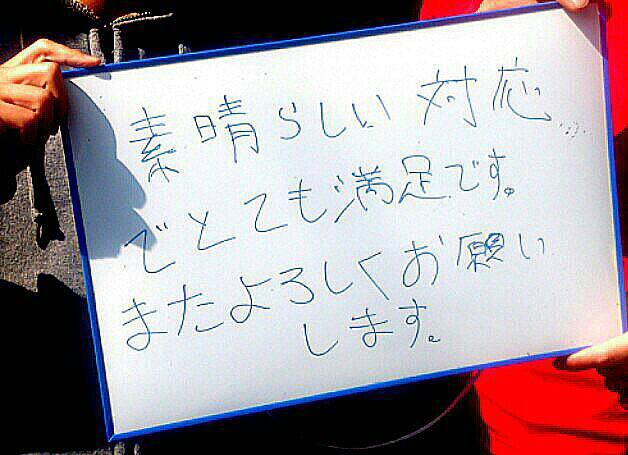 素晴らしい対応
でとても満足です。
またよろしくお願い
します。